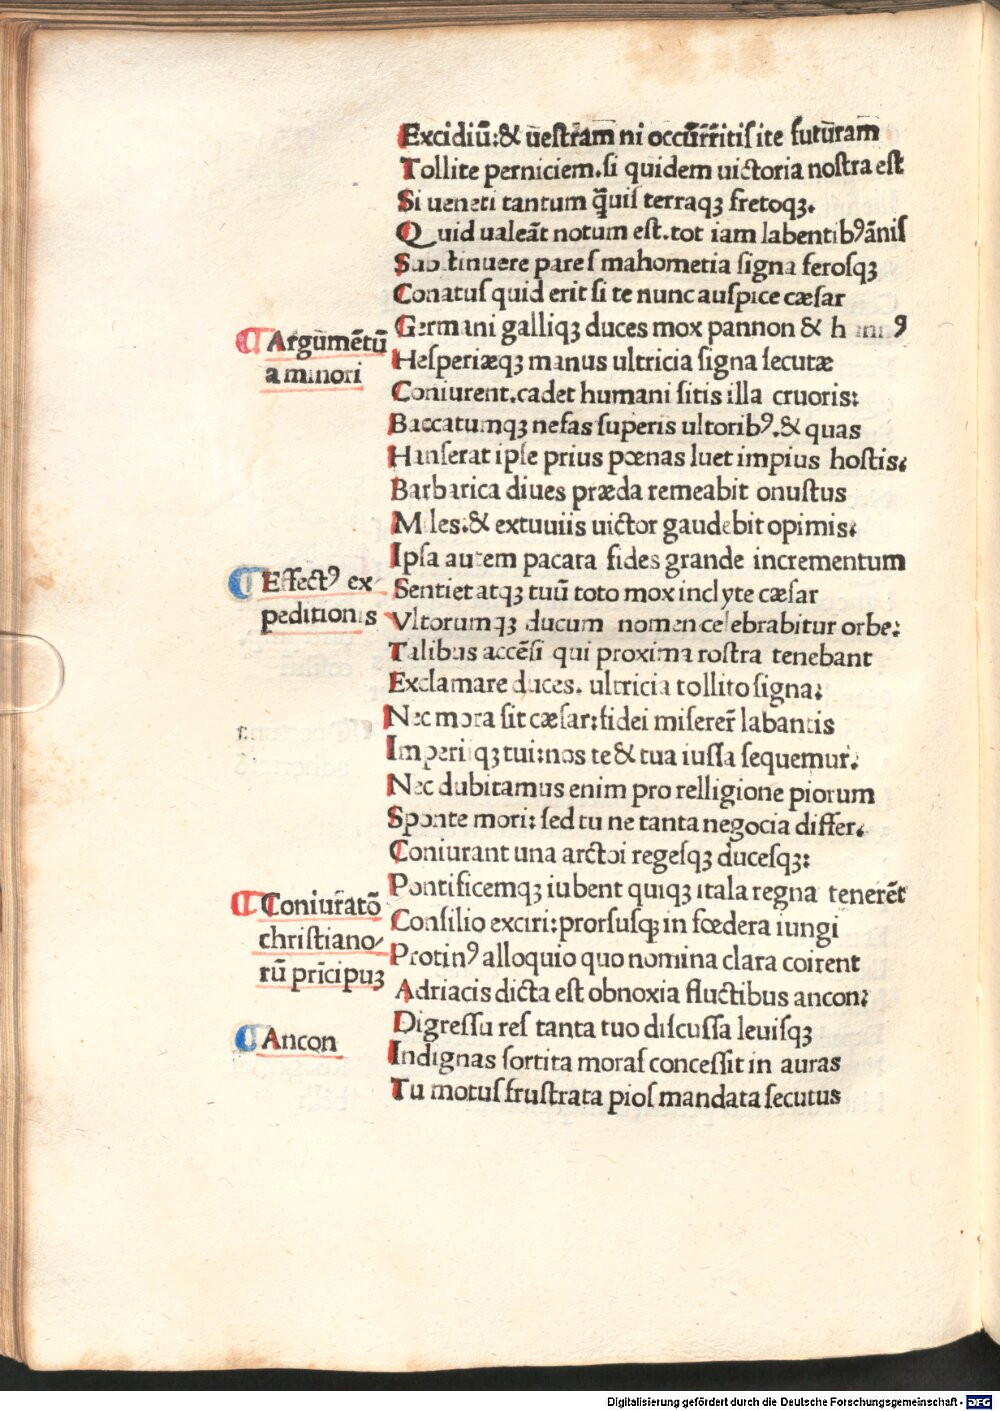 Excidiū:& uestram ni occūrritis ite futuram
Tollite perniciem.si quidem uictoria nostra est
Si ueneti tantum q̄uis terraqꝫ fretoqꝫ.
Quid ualeāt notum est.tot iam labentibꝰ ānis
Sustinuere pares mahometia signa ferosqꝫ
Conatus quid erit si te nunc auspice cæsar
Germani galliqꝫ duces mox pannon &
¶ Argumētū
a minori
Hesperiæqꝫ manus ultricia signa secutæ
Coniurent.cadet humani sitis illa cruoris:
Baccatumqꝫ nefas superis ultoribꝰ.& quas
Hanserat ipse prius pœnas luet impius hostis.
Barbarica diues præda remeabit onustus
Miles:& extuuiis uictor gaudebit opimis:
Ipsa autem pacata fides grande incrementum
¶ Effectꝰ ex-
peditionis
Sentiet atqꝫ tuū toto mox inclyte cæsar
Vltorumqꝫ ducum nomen celebrabitur orbe:
Talibus accēsi qui proxima rostra tenebant
Exclamare duces. ultricia tollito signa:
Nec mora sit cæsar:fidei miserer̄ labantis
Imperiiqꝫ tui:nos te & tua iussa sequemur.
Nec dubitamus enim pro relligione piorum
Sponte mori: sed tu ne tanta negocia differ.
Coniurant una arctoi regesqꝫ ducesqꝫ:
Pontificemqꝫ iubent quiqꝫ itala regna tenerēt
¶ Coniuratō
christiano-
rū prīcipuꝫ
Consilio exciri:prorsusqꝫ in fœdera iungi
Protinꝰ alloquio quo nomina clara coirent
Adriacis dicta est obnoxia fluctibus ancon:
Digressu res tanta tuo discussa leuisqꝫ
¶ Ancon
Indignas sortita moras concessit in auras
Tu motus frustrata pios mandata secutus
Digitalisierung gefördert durch die Deutsche Forschungsgemeinschaft - DFG